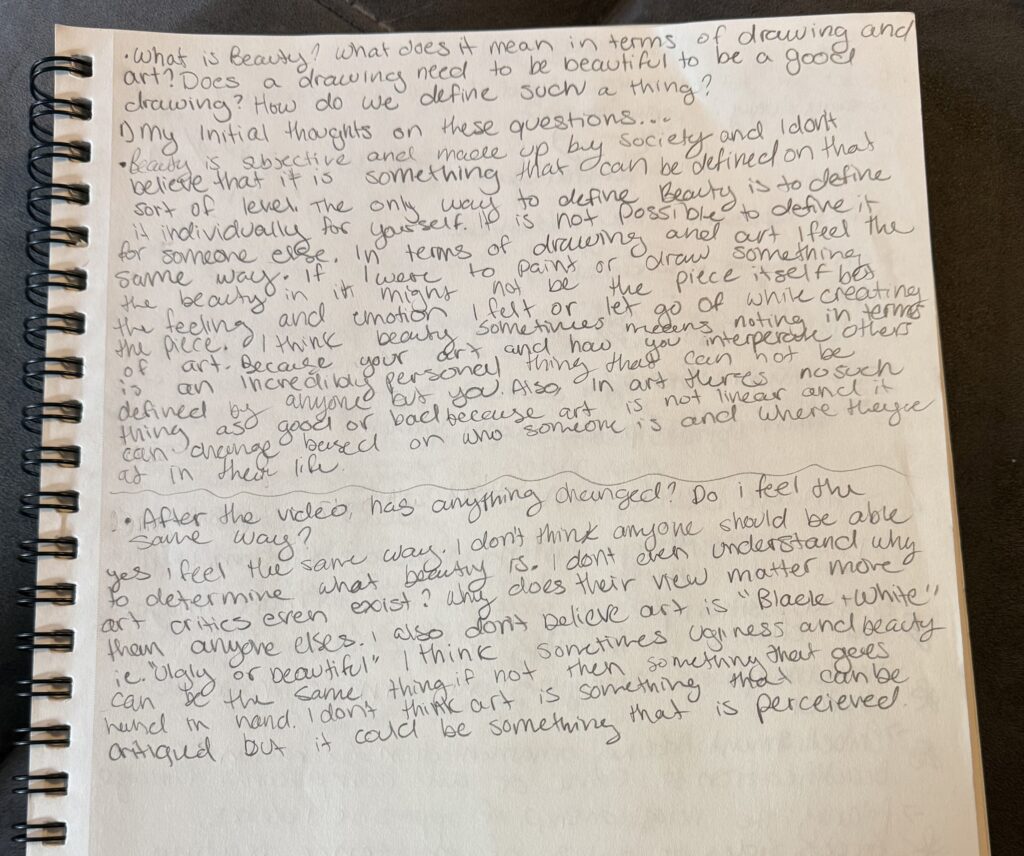 • What is Beauty? What does it mean in terms of drawing and
art? Does a drawing need to be beautiful to be a good
drawing? How do we define such a thing?
1) my initial thoughts on these questions...
• Beauty is subjective and made up by society and I dont
believe that it is something that can be defined on that
sort of level. The only way to define Beauty is to define
it individually for yourself. It is not possible to define it
for someone else. In terms of drawing and art I feel the
same way. If I were to paint or draw something
the beauty in it might not be the piece itself but
the feeling and emotion I felt or let go of while creating
the piece. I think beauty sometimes means noting in terms
of art. Because your art and how you interperate others
is an incredibly personal thing that can not be
defined by anyone but you. Also, in art theres no such
thing as good or bad because art is not linear and it
can change based on who someone is and where theyre
at in their life.
• After the video, has anything changed? Do i feel the
same way?
yes i feel the same way. I don't think anyone should be able
to determine what beauty is. I dont even understand why
art critics even exist? Why does their view matter more
then anyone elses. I also don't believe art is "Black + White"
ie. "Ugly or beautiful" I think sometimes uginess and beauty
can be the same thing if not then something that goes
hand in hand. I don't think art is something that can be
critiqued, but it could be something that is perceieved.